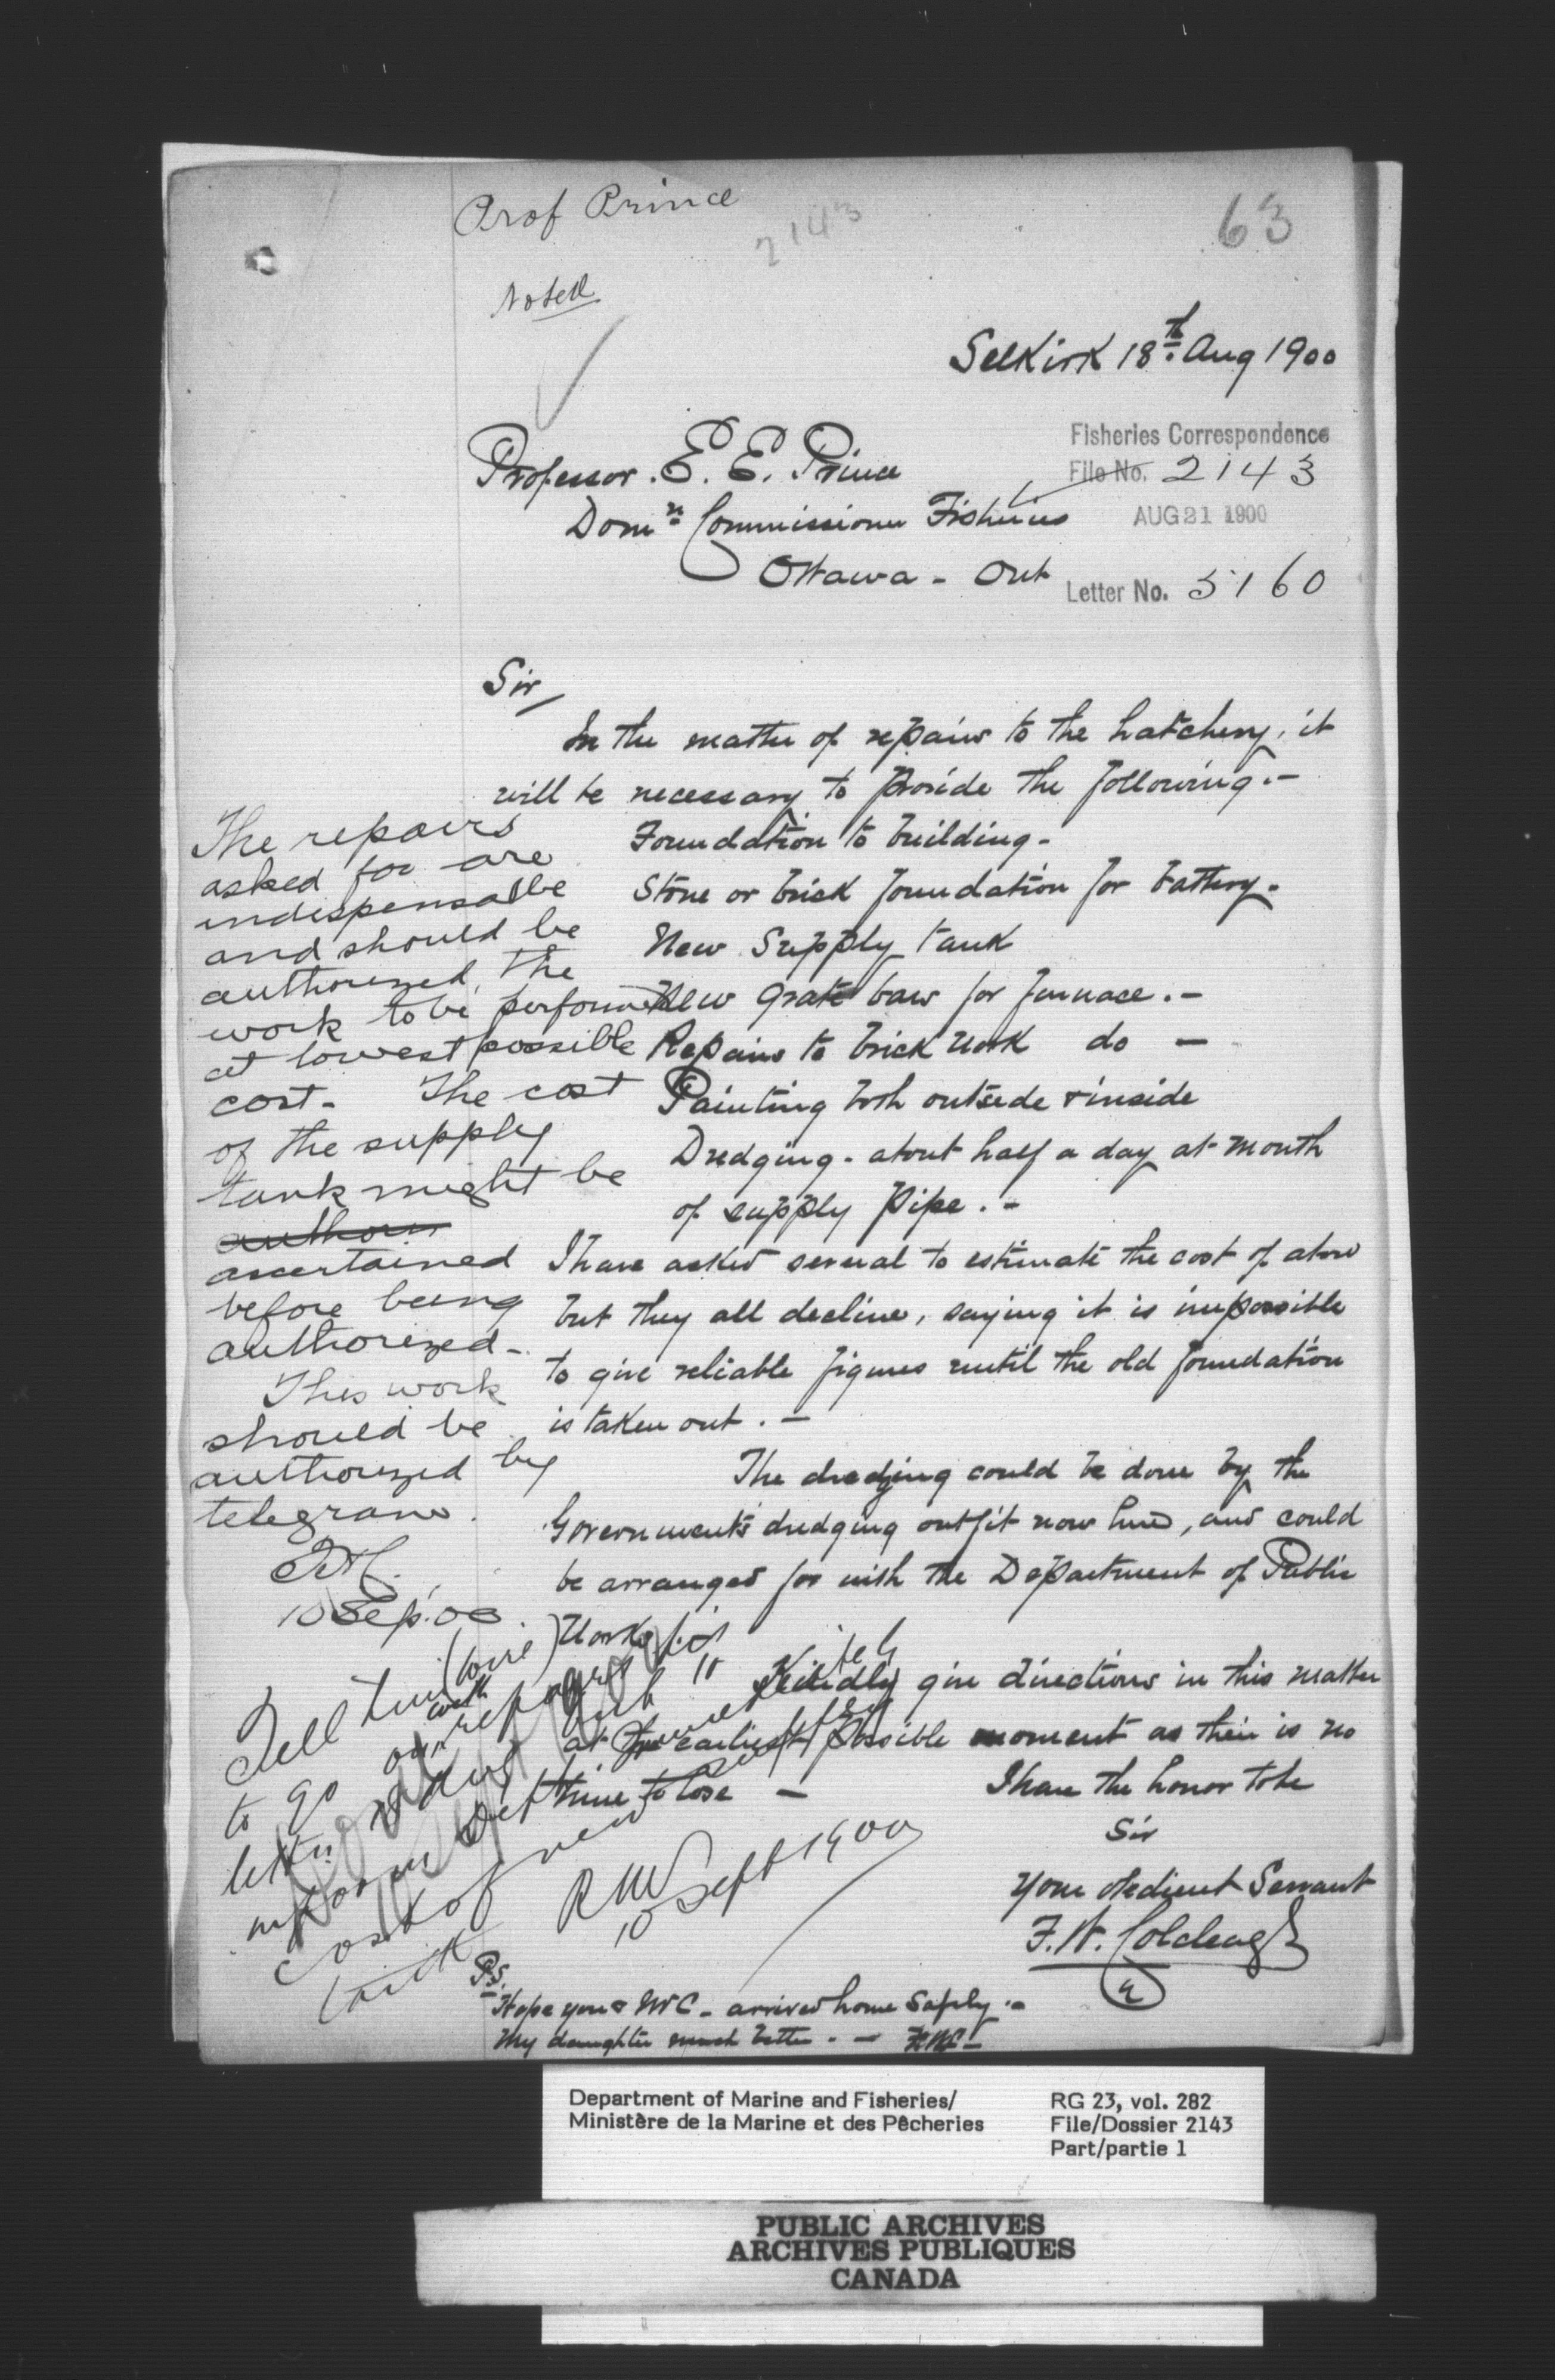 Prof Prince
2143
63
Noted
Selkirk 18th Aug 1900
Fisheries Correspondence
File No. 2143
AUG 21 1900
Letter No. 5160
Professor. E. E. Prince
Domn Commissioner Fisheries
Ottawa - Ont
Sir
In the matter of repairs to the hatchery, it
will be necessary to provide the following.-
Foundation to building-
Stone or brick foundation for battery-
New Supply tank
New Grate bars for furnace.-
Repairs to brick work do -
Painting both outside & inside
Dredging - about half a day at mouth
of supply pipe.-
I have asked several to estimate the cost of above
but they all decline, saying it is impossible
to give reliable figures until the old foundation
is taken out.-
The dredging could be done by the
Governments dredging outfit now here, and could
be arranged for with the Department of Public
Works.
Kindly give directions in this matter
at the earliest possible moment as their is no
time to lose -
I have the honor to be
Sir
Your obedient Servant
F. W. Colcleugh
P.S.
Hope you & Mr C - arrived home safely.-
My daughter much better.- FWC-
The repairs
asked for are
indispensable
and should be
authorized, the
work to be performed
at lowest possible
cost- The cost
of the supply
tank might be
author
ascertained
before being
authorized-
This work
should be
authorized by
telegram.
10 Sep. 00
Tell him (wire)
to go on with repairs
cost of new
tank
RW
10 Sept 1900
Department of Marine and Fisheries/
Ministère de la Marine et des Pêcheries
RG 23, vol. 282
File/Dossier 2143
Part/partie 1
PUBLIC ARCHIVES
ARCHIVES PUBLIQUES
CANADA